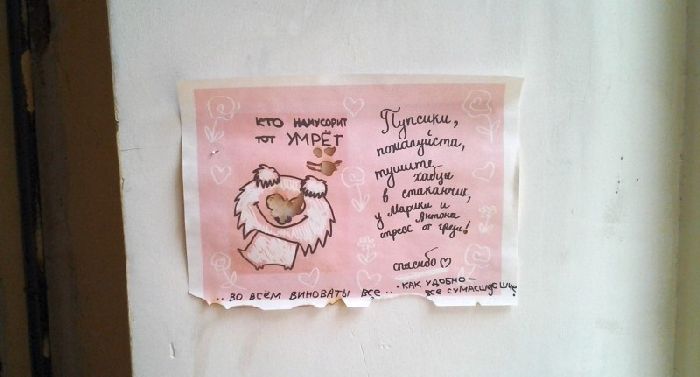 КТО НАМУСОРИТ
ТОТ УМРЁТ
Пупсики,
пожалуйста,
тушите
хабцы
в стаканчик,
у Марики и
Антона
стресс от грязи!
спасибо
..ВО ВСЁМ ВИНОВАТЫ ВСЕ..
.КАК УДОБНО—
ВСЕ СУМАСШЕДШИЕ!